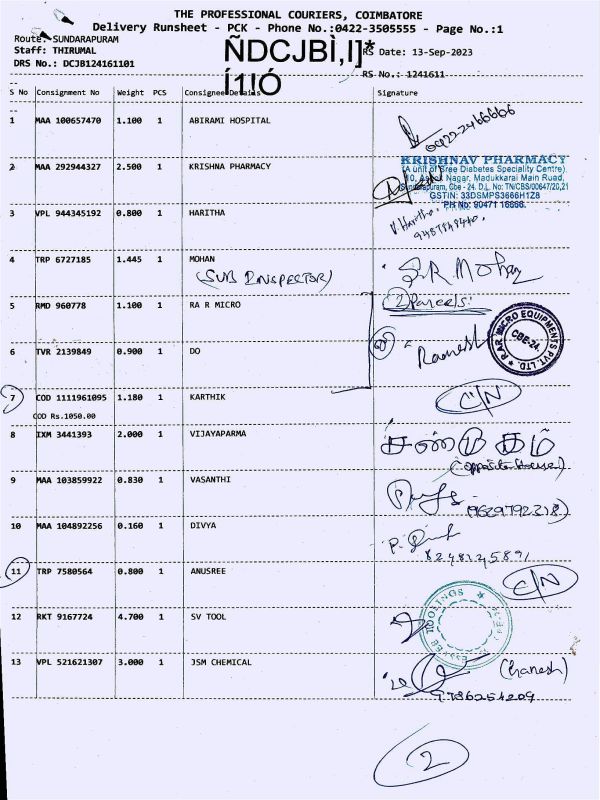 THE PROFESSIONAL COURIERS, COIMBATORE
Delivery Runsheet - PCK - Phone No.:0422-3505555 - Page No.:1
Route: SUNDARAPURAM
Staff: THIRUMAL
ÑDCJBÌ,I]*
RS Date: 13-Sep-2023
DRS No.: DCJB124161101
Í1!Ó
RS No.: 1241611
S No Consignment No Weight PCS Consignee Details Signature
1 MAA 100657470 1.100 1 ABIRAMI HOSPITAL
0422-2466666
2 MAA 292944327 2.500 1 KRISHNA PHARMACY
KRISHNAV PHARMACY
(A unit of Sree Diabetes Speciality Centre)
10, Ashok Nagar, Madukkarai Main Road,
Sundarapuram, Cbe - 24. D.L. No: TN/CBS/00647/20,21
GSTIN: 33DSMPS3666H1Z8
PH No: 90471 16666.
3 VPL 944345192 0.800 1 HARITHA
V. Haritha
4 TRP 6727185 1.445 1 MOHAN
(SUB INSPECTOR)
S.R Mohan
5 RMD 960778 1.100 1 RA R MICRO
(2 Parcels)
6 TVR 2139849 0.900 1 DO
Ramesh
RAR MICRO EQUIPMENTS PVT. LTD.
CBE-24.
7 COD 1111961095 1.180 1 KARTHIK
COD Rs.1050.00
C/N
8 IXM 3441393 2.000 1 VIJAYAPARMA
சண்முகம்
(opposite house)
9 MAA 103859922 0.830 1 VASANTHI
(9629792318)
10 MAA 104892256 0.160 1 DIVYA
8248145891
11 TRP 7580564 0.800 1 ANUSREE
C/N
12 RKT 9167724 4.700 1 SV TOOL
TOOLINGS
13 VPL 521621307 3.000 1 JSM CHEMICAL
(Ganesh)
9786254209
2